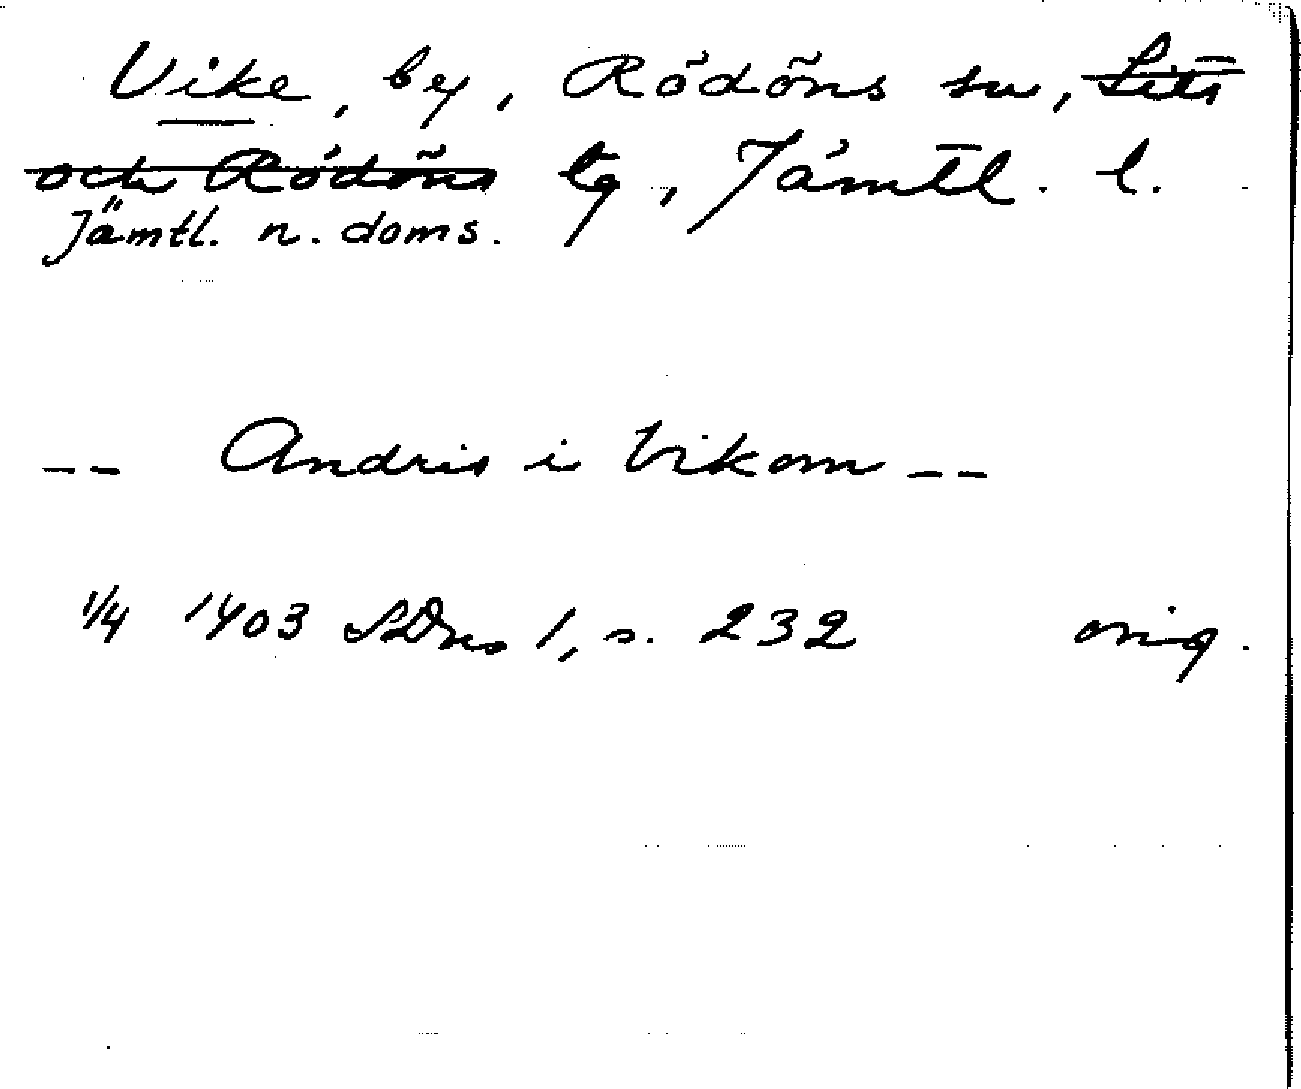 Vike, by, Rödöns sn, Lits
och Rödöns tg, Jämtl. l.
Jämtl. n. doms.
-- Andris i Vikom --
1/4 1403 SDns 1, s. 232 orig.